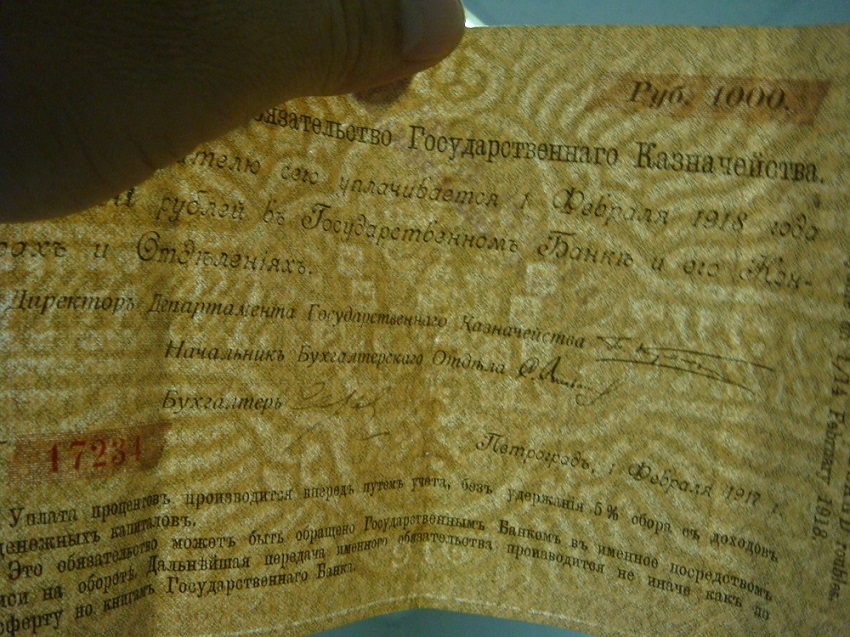 Руб. 1000.
бязательство Государственнаго Казначейства.
ителю сего уплачивается 1 Февраля 1918 года
рублей въ Государственномъ Банкѣ и его Кон-
рахъ и Отдѣленіяхъ.
Директоръ Департамента Государственнаго Казначейства
Начальникъ Бухгалтерскаго Отдѣла
Бухгалтеръ
17234
Петроградъ, 1 Февраля 1917 г.
Уплата процентовъ производится впередъ путемъ учета, безъ удержанія 5% сбора съ доходовъ
денежныхъ капиталовъ.
Это обязательство можетъ быть обращено Государственнымъ Банкомъ въ именное посредствомъ
писи на оборотѣ. Дальнѣйшая передача именного обязательства производится не иначе какъ по
сферту по книгамъ Государственнаго Банка.
roubles.
1/14 February 1918.